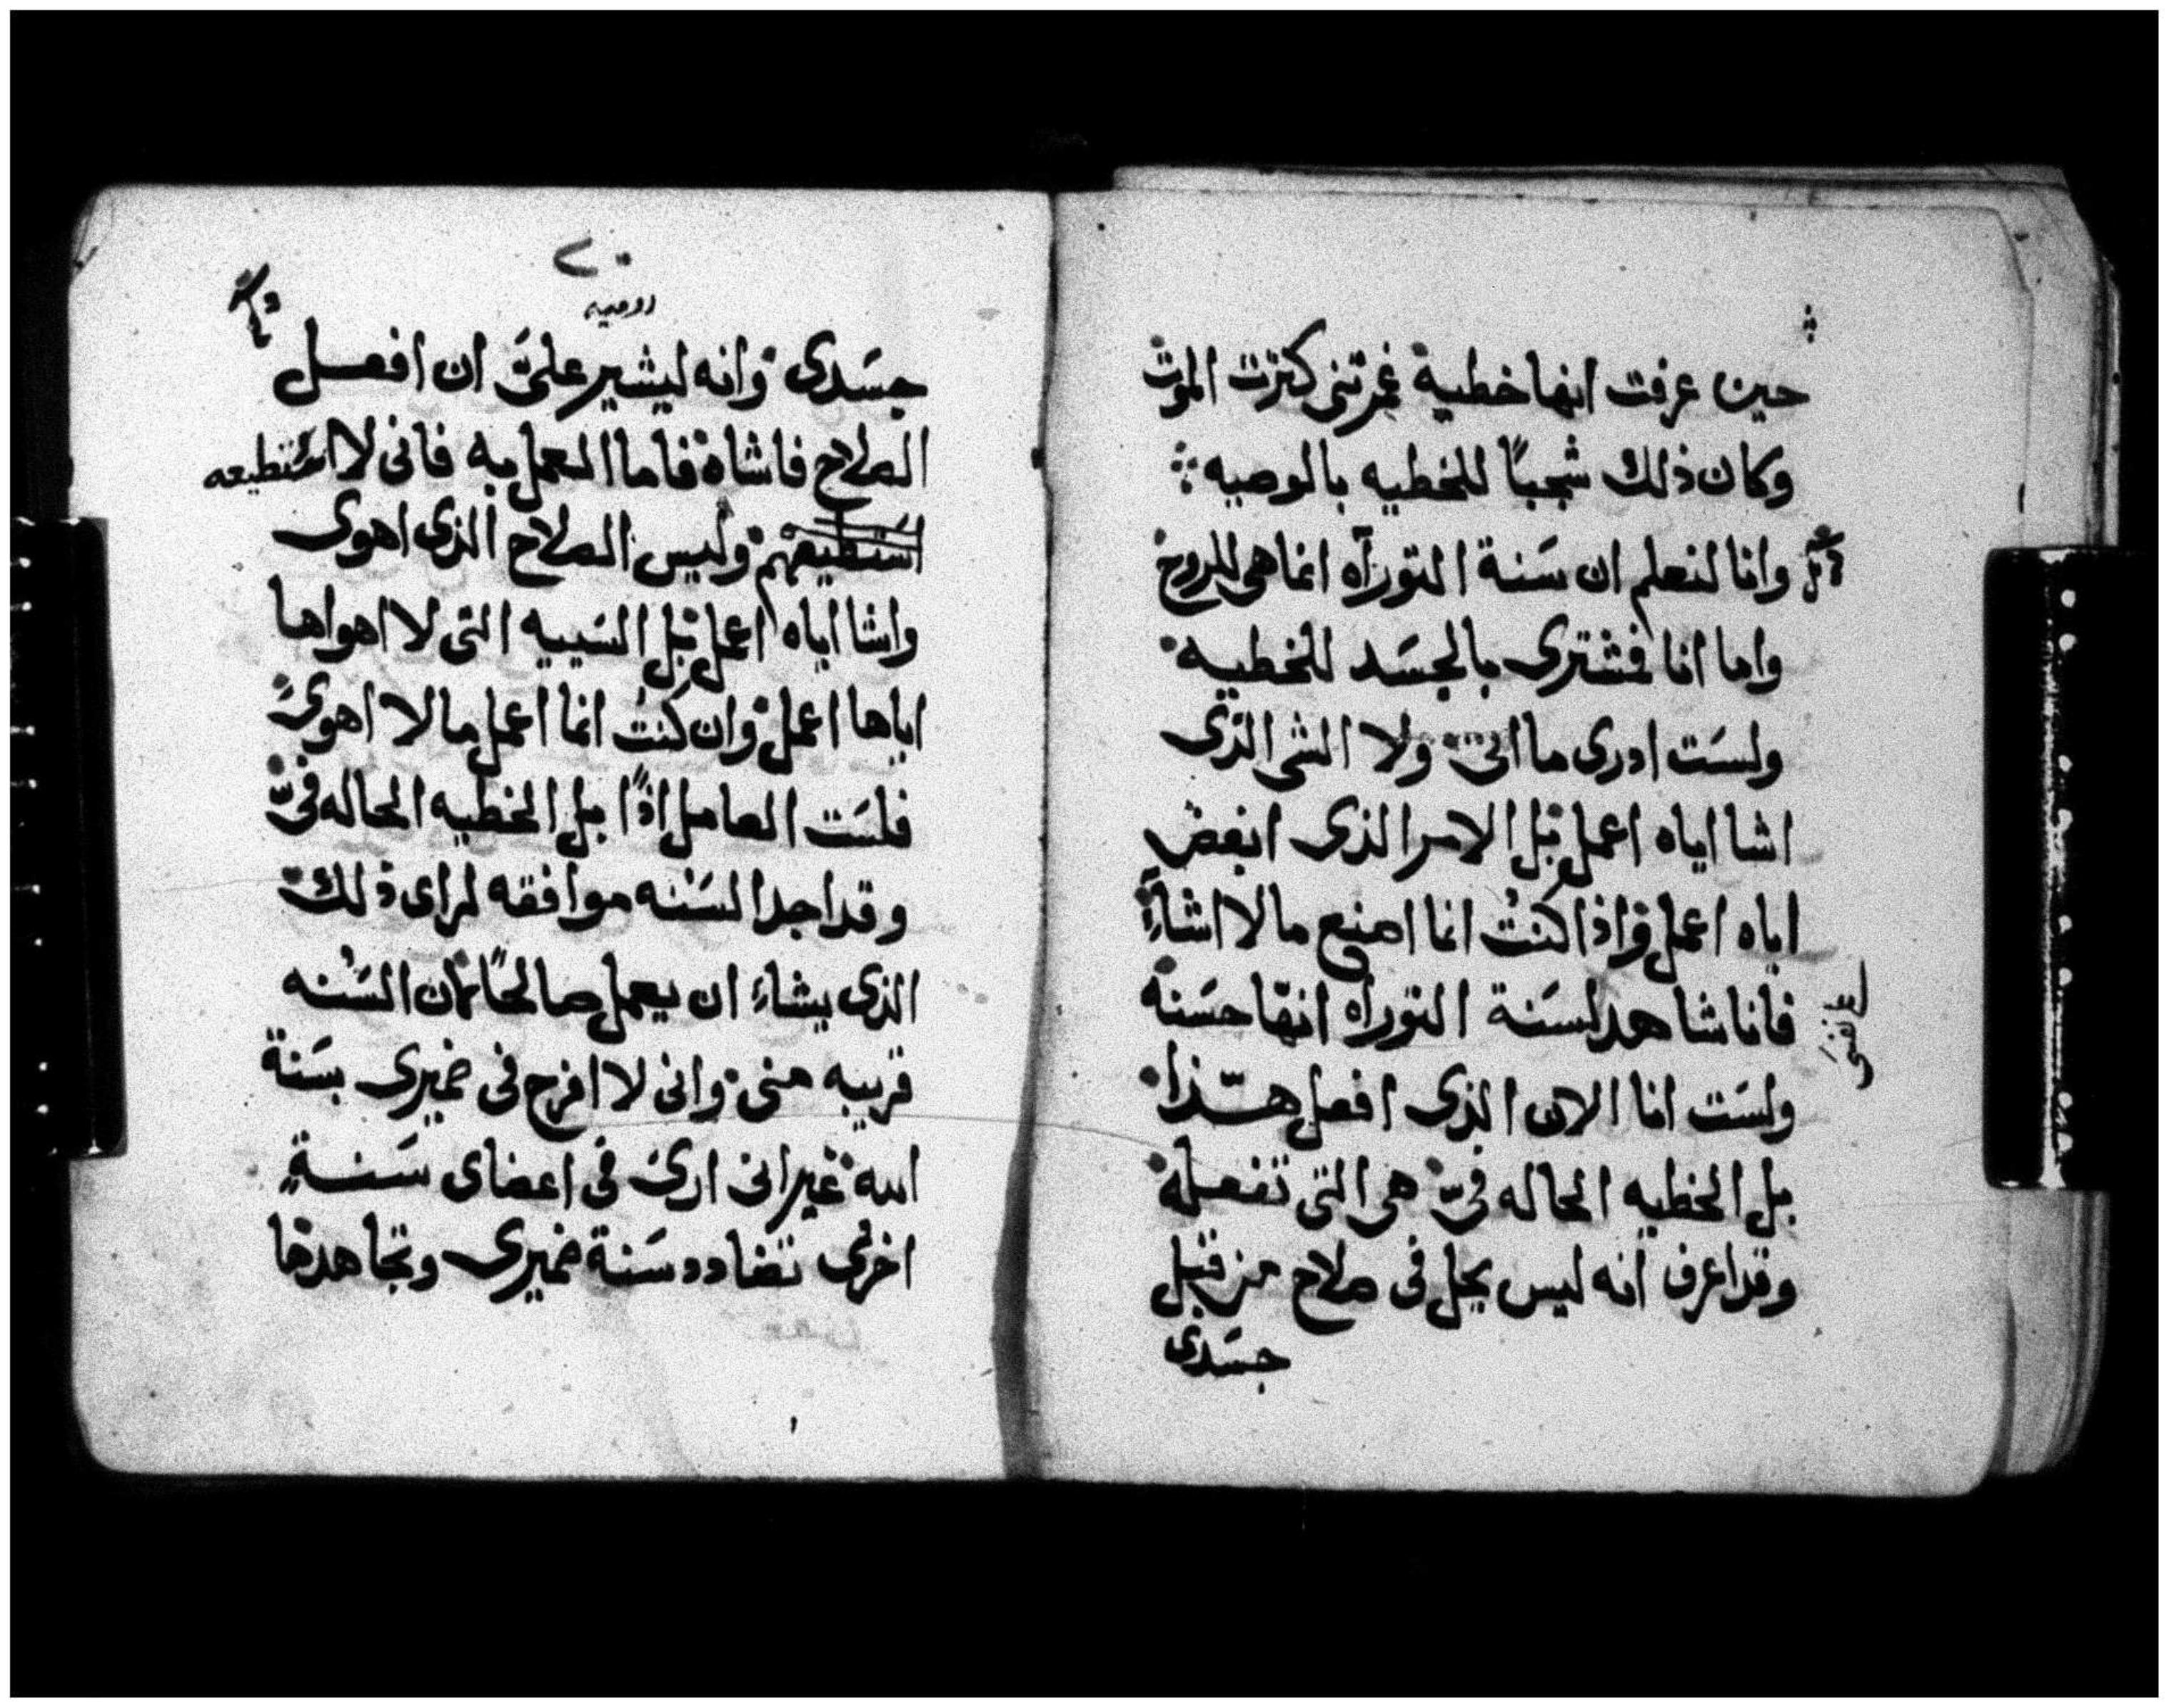 حين عرفت انها خطية غمرتنى كترت الموت
وكان ذلك شجبًا للخطيه بالوصيه
وانا لنعلم ان سَنة التوراه انما هى للروح
واما انا فمشترى بالجسَد للخطيه
ولسَت ادرى ما اتى ولا الشى الذى
اشا اياه اعمل بل الامر الذى ابغض
اياه اعمل واذا كنت انما اصنع ما لا اشاءِ
فانا شاهد لسَنة التوراه انها حسَنه
على نفسى
ولسَت انا الان الذى افعل هذا
بل الخطيه الحاله فىّ هى التى تفعله
وقد اعرف انه ليس يحل فى صلاح من قبل
جسَدى
رومييه
جسَدى وانه ليشير علىَّ ان افعل
الصلاح فاشاه فاما العمل به فانى لا استطيعه
استطيعهم وليس الصلاح الذى اهوى
واشا اياه اعمل بل السَييه التى لا اهواها
اياها اعمل وان كنت انما اعمل ما لا اهوى
فلسَت العامل اذًا بل الخطيه الحاله فىّ
وقد اجد السَنه موافقه لراى ذلك
الذى يشاءِ ان يعمل صالحًا لان السَنه
قريبه منى وانى لا افرح فى ضميرى بسَنة
الله غير انى ارى فى اعضاى سَنةٍ
اخرى تضادد سَنة ضميرى وتجاهدها